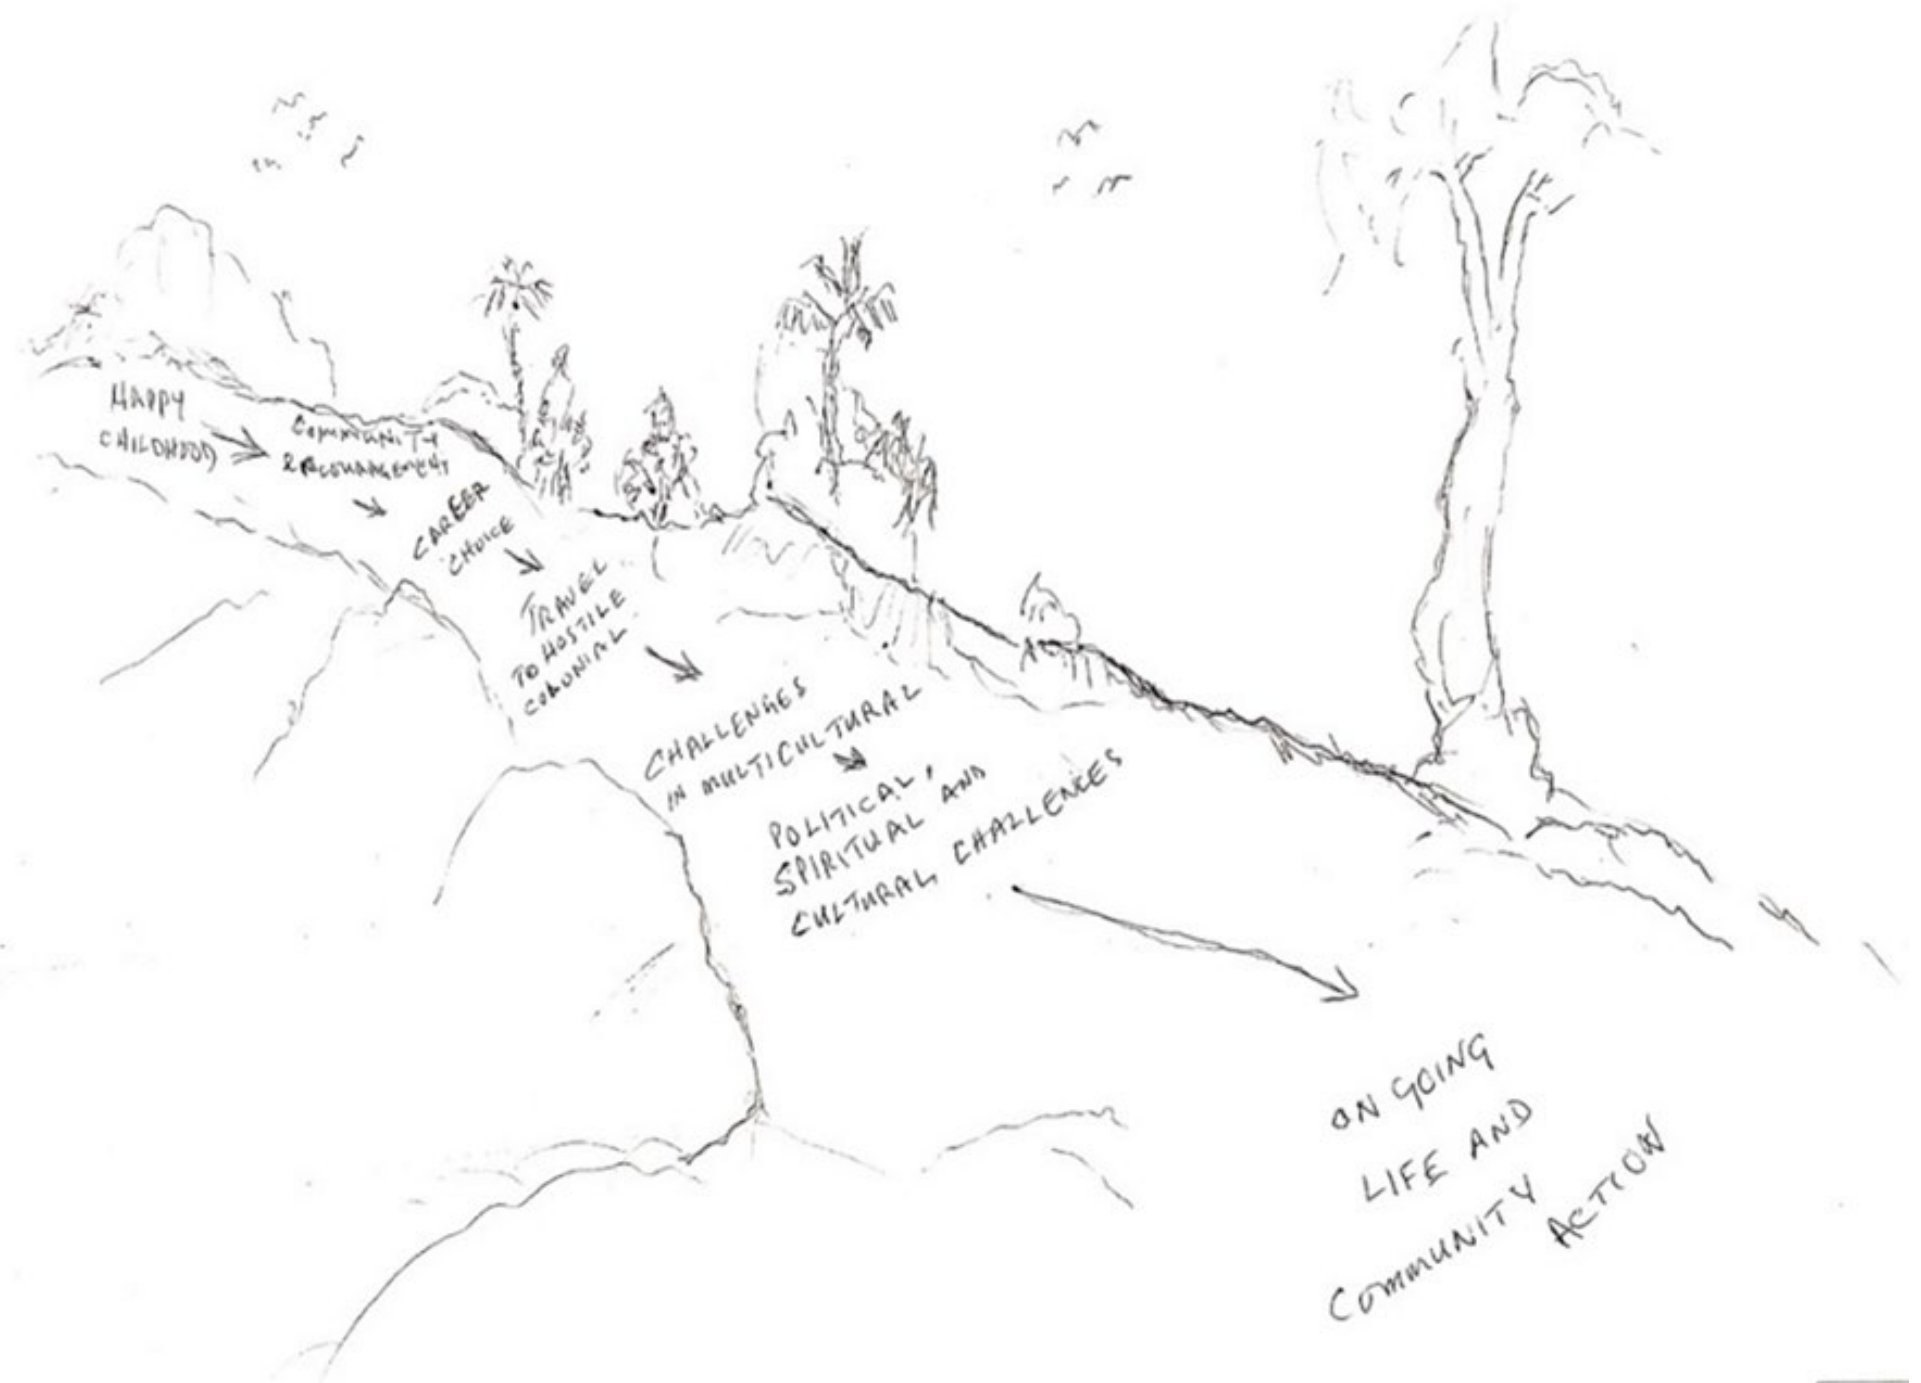 HAPPY
CHILDHOOD
COMMUNITY
ENCOURAGEMENT
CAREER
CHOICE
TRAVEL
TO HOSTILE
COLONIAL
CHALLENGES
IN MULTICULTURAL
POLITICAL,
SPIRITUAL AND
CULTURAL CHALLENGES
ON GOING
LIFE AND
COMMUNITY
ACTION